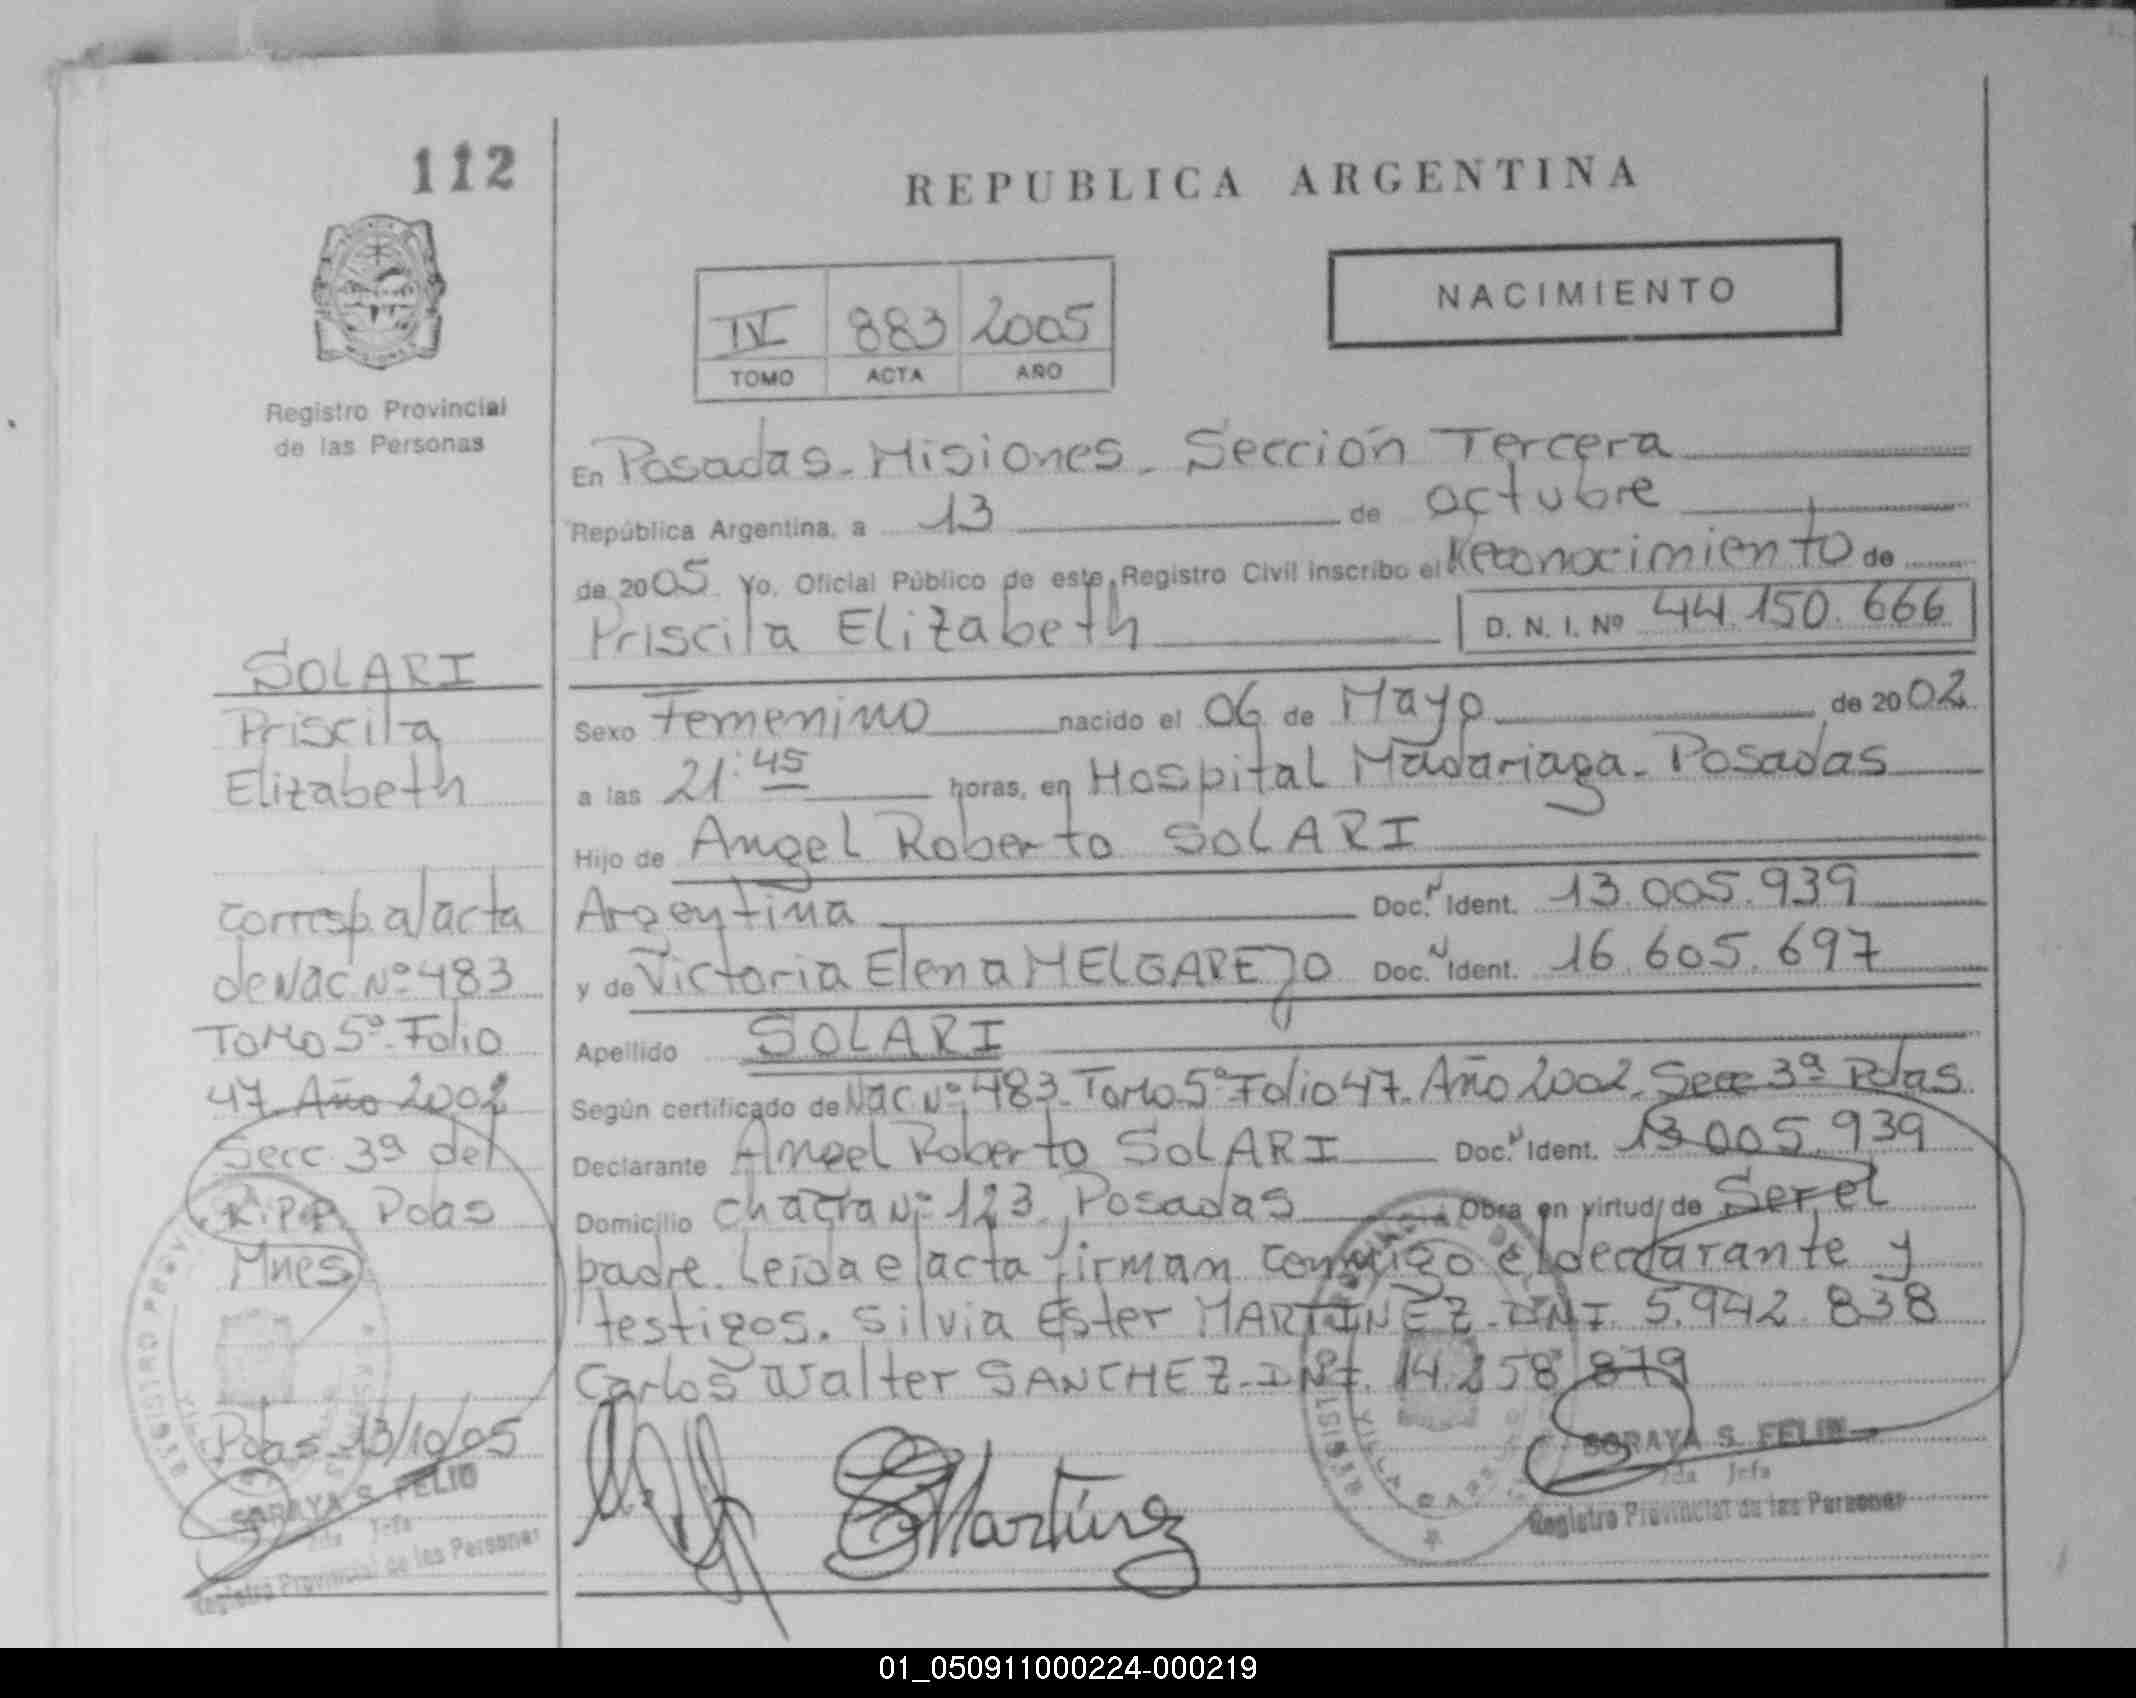 112
REPUBLICA ARGENTINA
NACIMIENTO
IV 883 2005
TOMO ACTA AÑO
Registro Provincial
de las Personas
SOLARI
Priscila
Elizabeth
corresp. a/acta
de Nac. Nº 483
Tomo 5º Folio
47 Año 2002
Secc 3ª del
R.P.P. Pdas
Mnes
Pdas 13/10/05
SORAYA S. FELIU
2da Jefa
Registro Provincial de las Personas
En Posadas - Misiones - Sección Tercera
República Argentina, a 13 de octubre
de 2005 Yo, Oficial Público de este Registro Civil inscribo el Reconocimiento de
Priscila Elizabeth D. N. I. Nº 44.150.666
Sexo Femenino nacido el 06 de Mayo de 2002
a las 21:45 horas, en Hospital Madariaga - Posadas
Hijo de Angel Roberto SOLARI
Argentina Doc. N Ident. 13.005.939
y de Victoria Elena MELGAREJO Doc. N Ident. 16.605.697
Apellido SOLARI
Según certificado de Nac Nº 483 - Tomo 5º Folio 47 - Año 2002 - Secc 3ª Pdas
Declarante Angel Roberto SOLARI Doc. N Ident. 13.005.939
Domicilio chacra Nº 123, Posadas Obra en virtud de Ser el
padre. Leida el acta firman conmigo el declarante y
testigos. Silvia Ester MARTINEZ - DNI. 5.942.838
Carlos Walter SANCHEZ - DNI. 14.258.879
Martínez
SORAYA S. FELIU
2da Jefa
Registro Provincial de las Personas
01_050911000224-000219